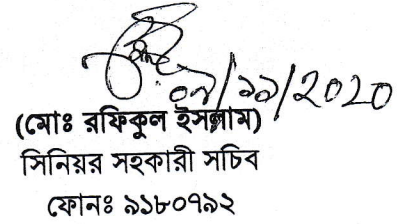 ০৯/১১/২০২০
(মোঃ রফিকুল ইসলাম)
সিনিয়র সহকারী সচিব
ফোনঃ ৯১৮০৭৯২